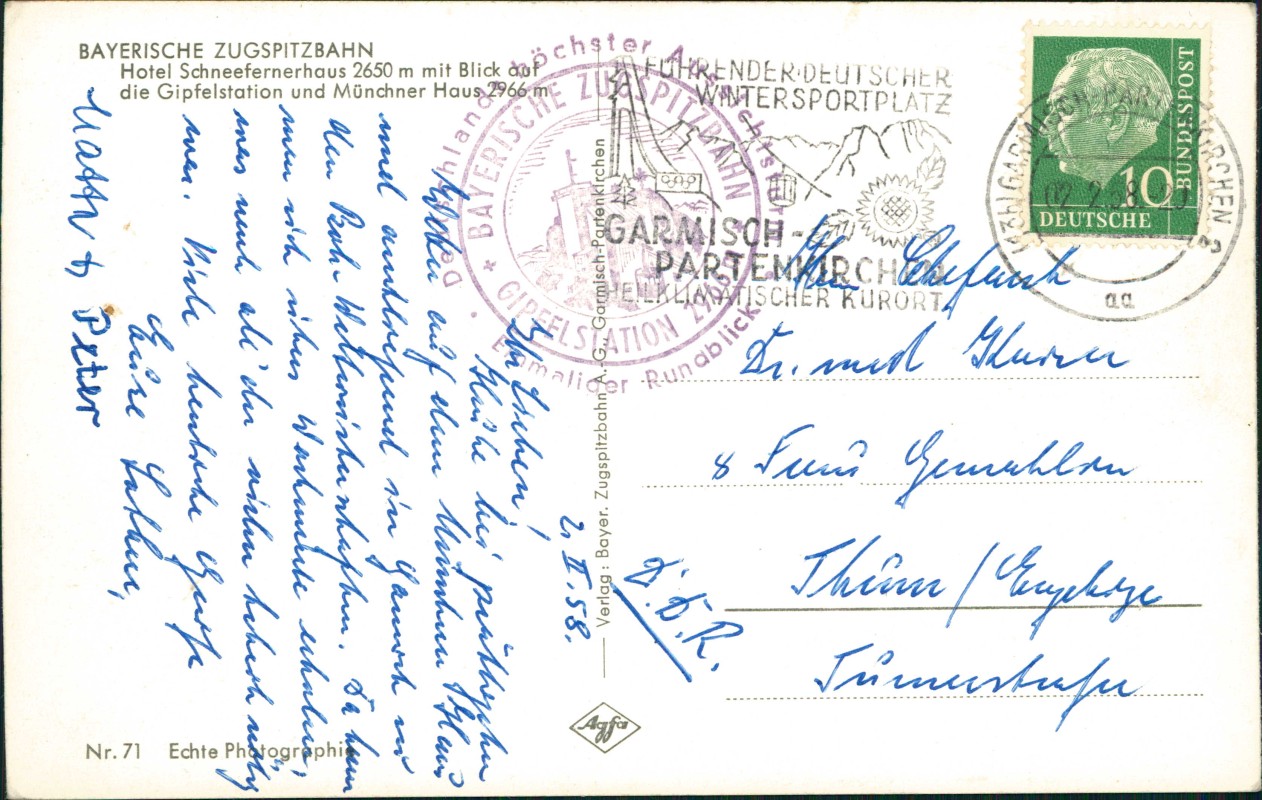 BAYERISCHE ZUGSPITZBAHN
Hotel Schneefernerhaus 2650 m mit Blick auf
die Gipfelstation und Münchner Haus 2966 m
Deutschlands höchster Aussichtsturm
* BAYERISCHE ZUGSPITZBAHN *
GIPFELSTATION 2966 m
Einmaliger Rundblick
FÜHRENDER DEUTSCHER
WINTERSPORTPLATZ
GARMISCH-
PARTENKIRCHEN
HEILKLIMATISCHER KURORT
GARMISCH-PARTENKIRCHEN 2
02.2.58
aa
BUNDESPOST
10
DEUTSCHE
2. II. 58.
Ihr Lieben!
Heute bei
Wetter auf dem Münchner Haus
und anschließend in Garmisch zu
den Bob Weltmeisterschaften. Da kann
man sich schon
was und als
wir. Viele herzliche Grüße
Eure Lothar,
Peter
Herrn Chefarzt
Dr. med
& Frau Gemahlin
Thum / Erzgebirge
D.D.R.
Turnerstraße
Verlag: Bayer. Zugspitzbahn A.-G., Garmisch-Partenkirchen
Agfa
Nr. 71 Echte Photographie